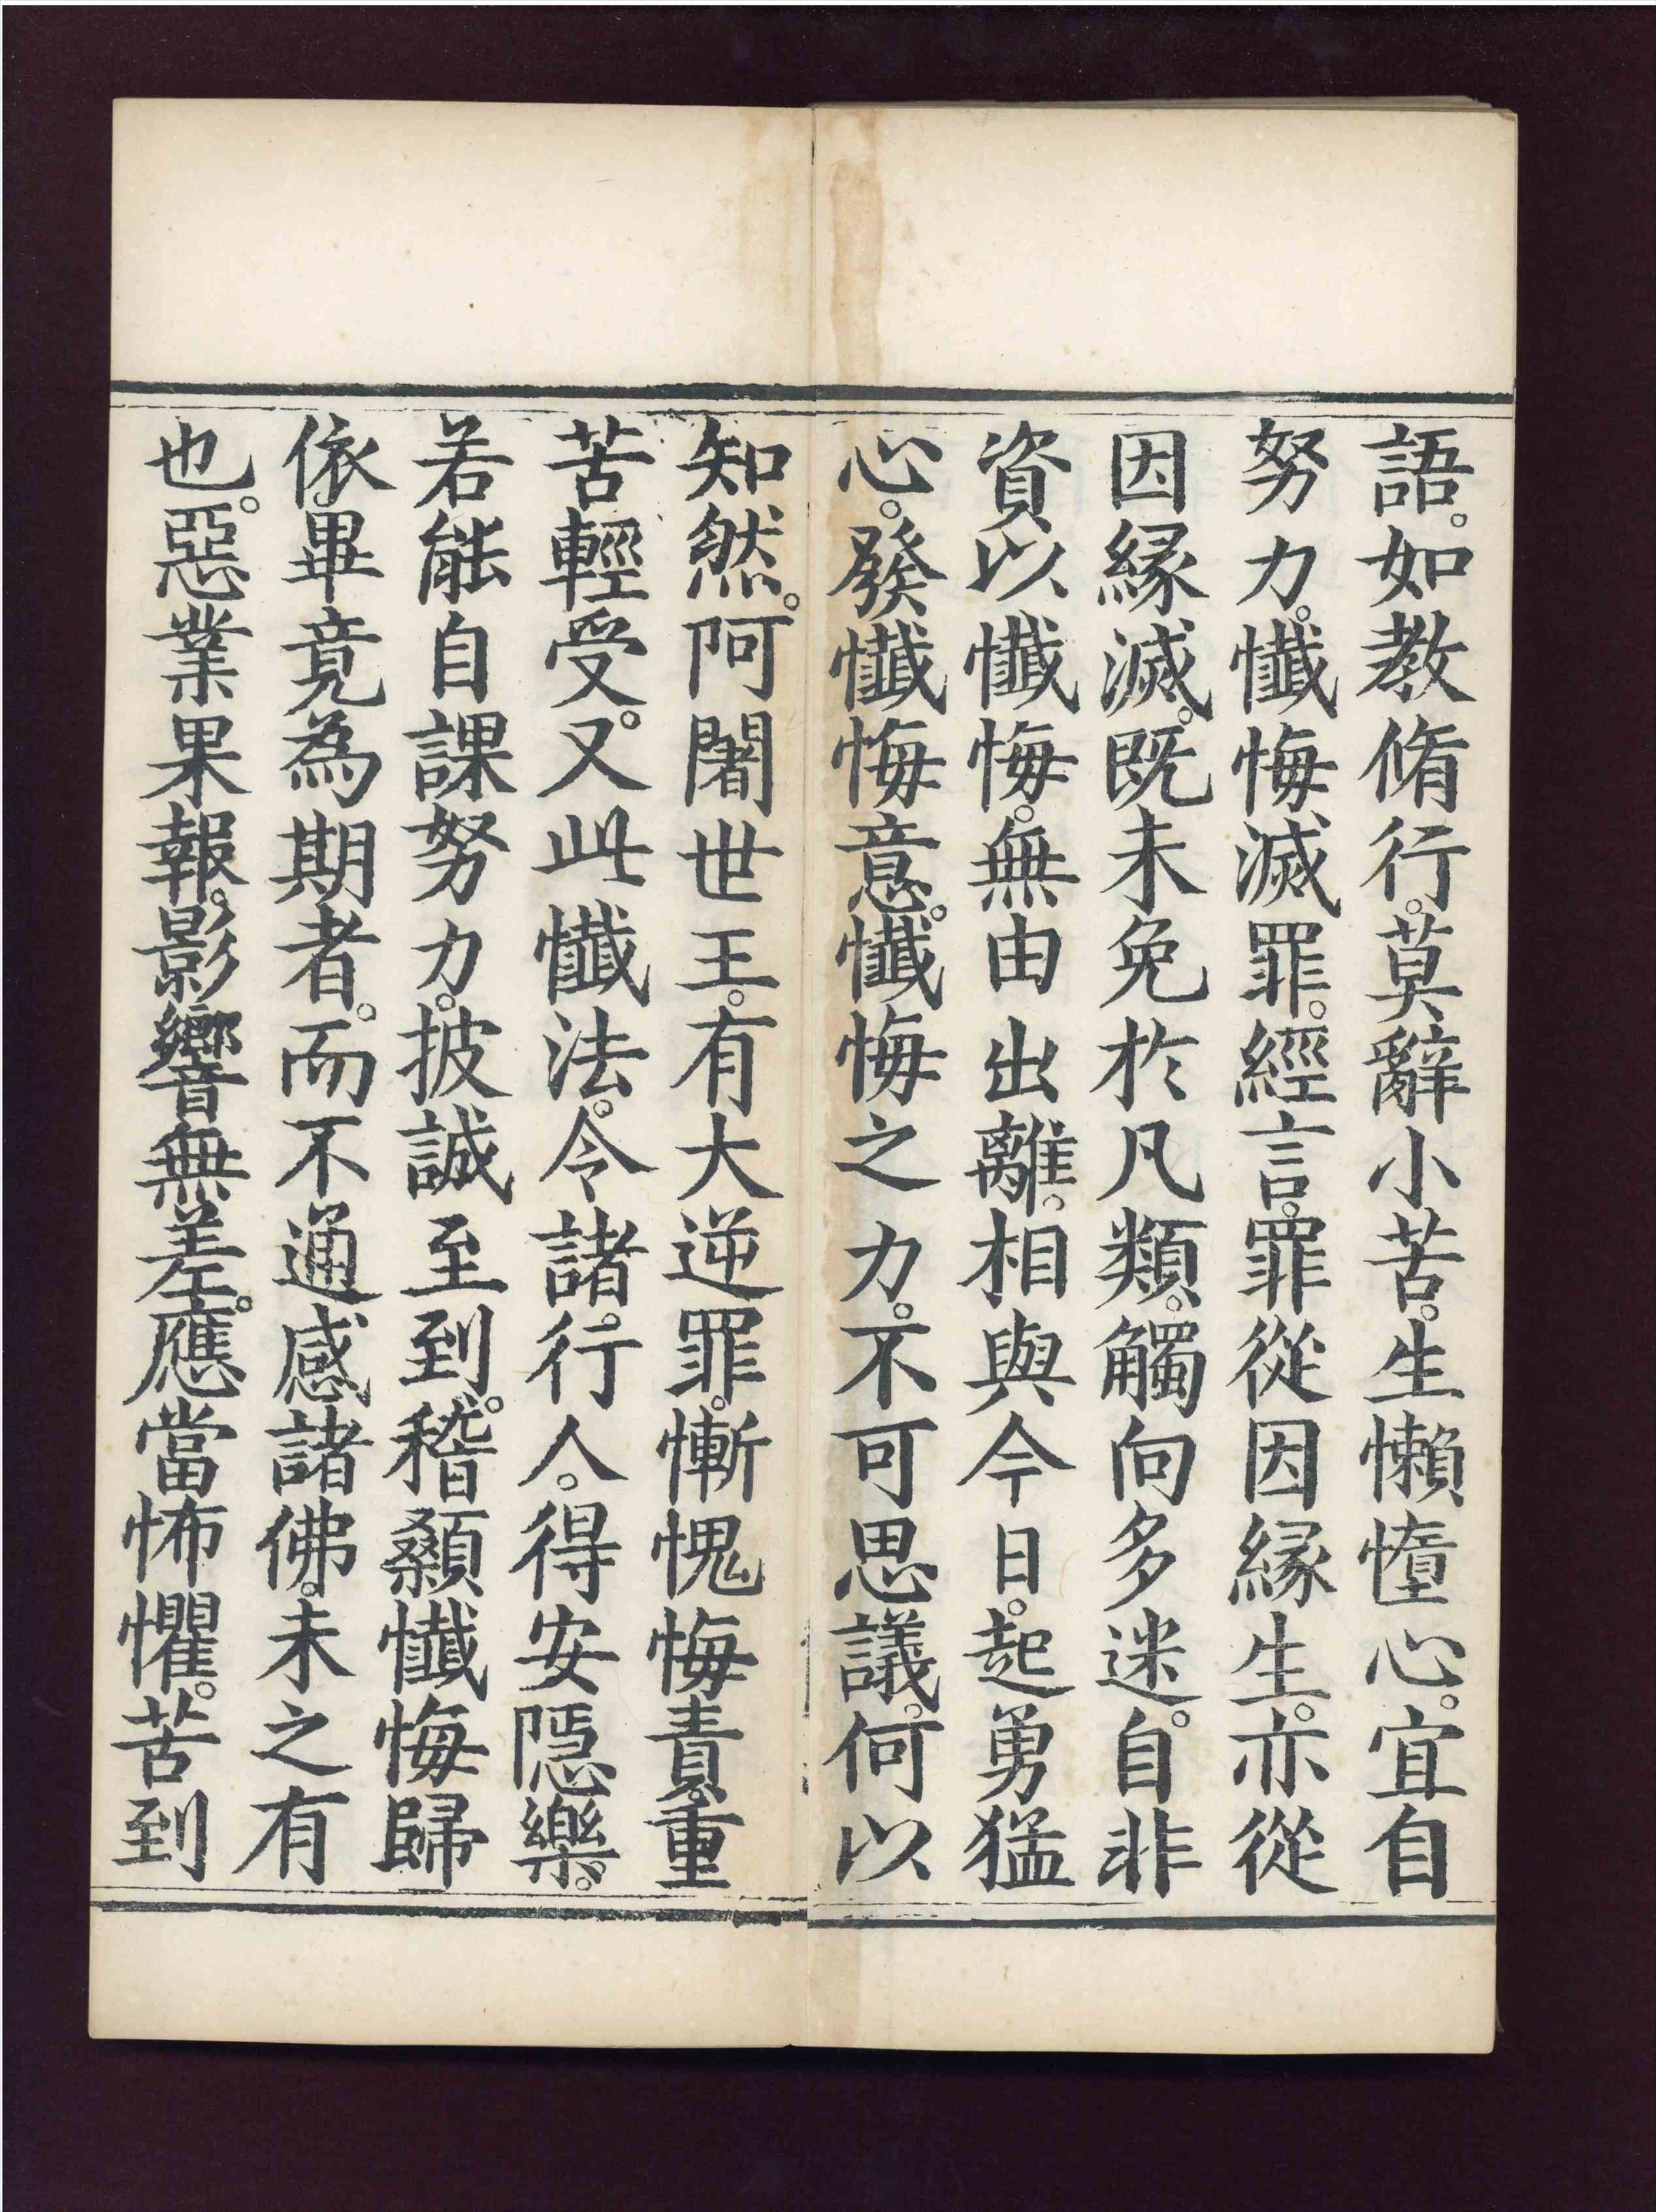 語。如教脩行。莫辭小苦。生懶憧心。宜自
努力。懺悔滅罪。經言。罪從因縁生。亦從
因縁滅。既未免於凡類。觸向多迷。自非
資以懺悔。無由出離。相與今日。起勇猛
心。發懺悔意。懺悔之力。不可思議。何以
知然。阿闍世王。有大逆罪。慚愧悔責。重
苦輕受。又此懺法。令諸行人。得安隱樂。
若能自課努力。披誠至到。稽顙懺悔歸
依。畢竟為期者。而不通感諸佛。未之有
也。惡業果報。影響無差。應當怖懼。苦到